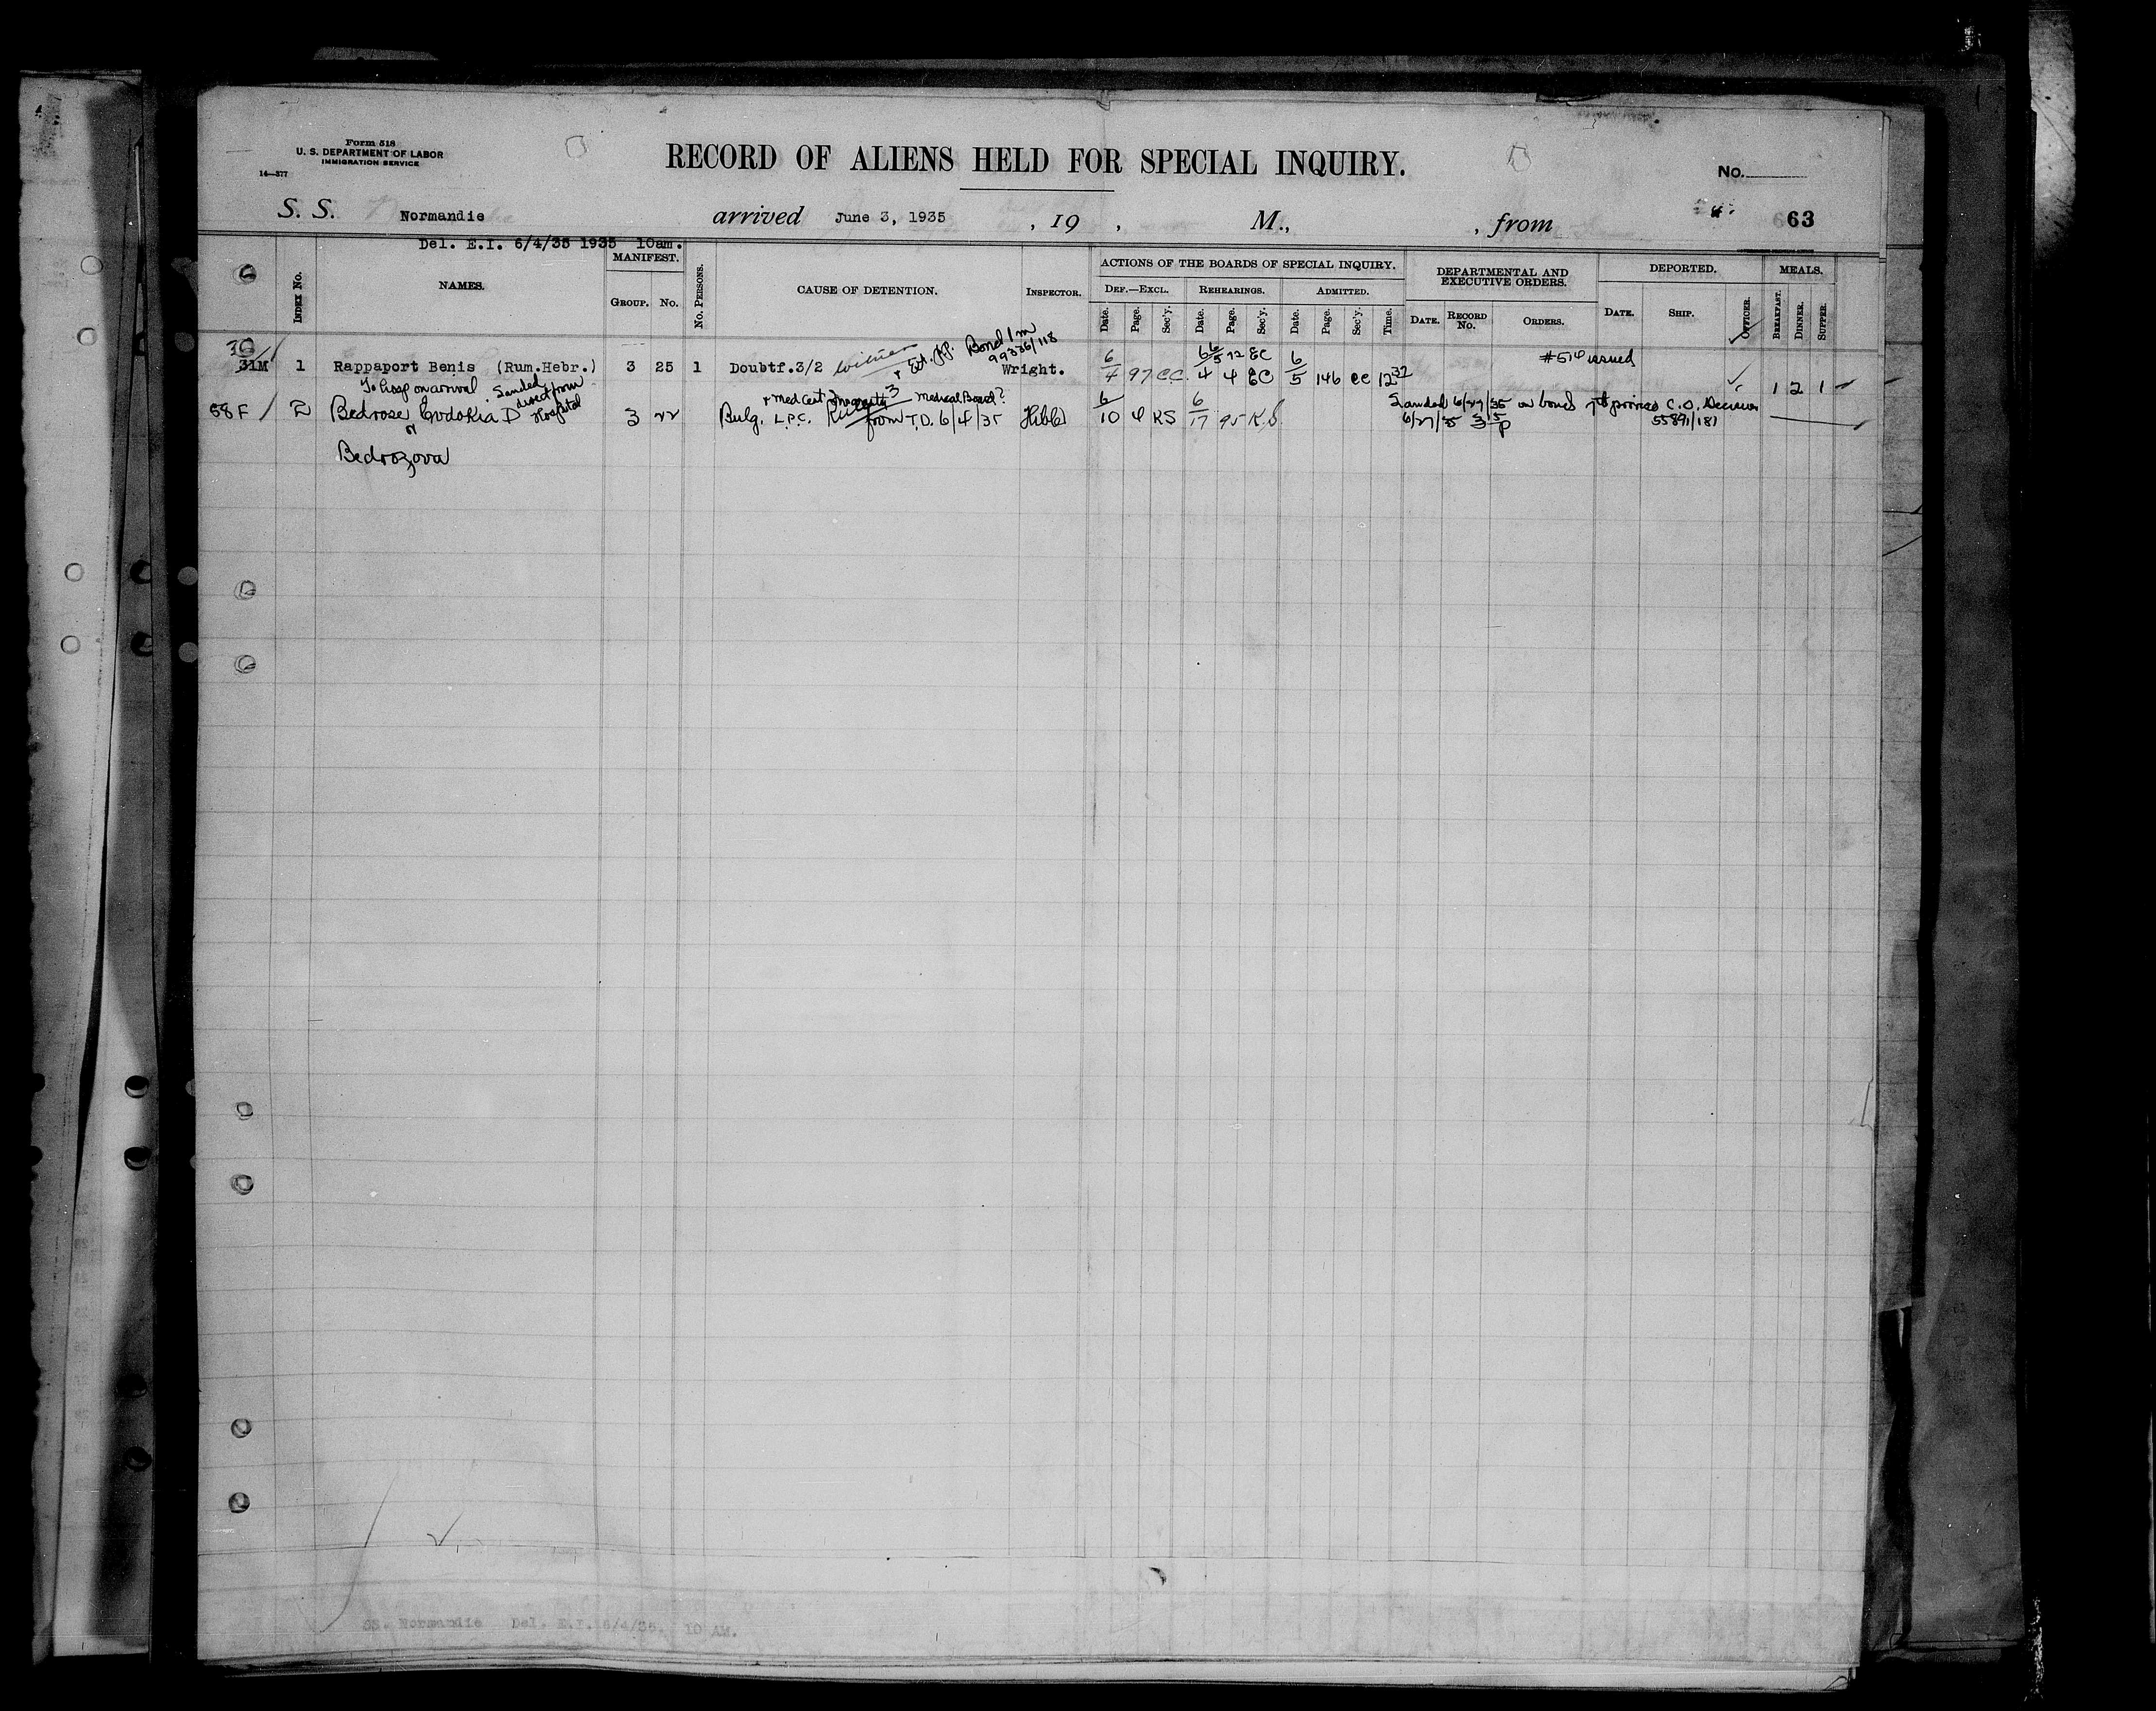 Form 518
U. S. DEPARTMENT OF LABOR
IMMIGRATION SERVICE
14—377
RECORD OF ALIENS HELD FOR SPECIAL INQUIRY.
No.
S. S. Normandie arrived June 3, 1935, 19 , M., , from
63
Del. E.I. 6/4/35 1935 10am.
INDEX No.
NAMES.
MANIFEST.
GROUP. No.
No. PERSONS.
CAUSE OF DETENTION.
INSPECTOR.
ACTIONS OF THE BOARDS OF SPECIAL INQUIRY.
DEF.—EXCL. REHEARINGS. ADMITTED.
Date. Page. Sec'y. Date. Page. Sec'y. Date. Page. Sec'y. Time.
DEPARTMENTAL AND
EXECUTIVE ORDERS.
DATE. RECORD No. ORDERS.
DEPORTED.
DATE. SHIP. OFFICER.
MEALS.
BREAKFAST. DINNER. SUPPER.
Bond 1m
99336/118
31M 1 Rappaport Benis (Rum.Hebr.) 3 25 1 Doubtf.3/2 witness Wright. 6/4 97 CC 6/4 4 EC 6/5 72 EC 6/5 146 CC 12 37 #516 issued 1 2 1
To hosp on arrival. Landed direct from Hospital
+ Med Cert Medical Board?
58 F 2 Bedrose Evdokia D 3 22 Bulg. L.P.C. from T.D. 6/4/35 6/10 4 KS 6/17 95 K.S.
Landed 6/27/35 on bond C.O. Decision
6/27/35 3 15 P 55891/181
or
Bedrozova
SS. Normandie Del. E.I. 6/4/35. 10 AM.